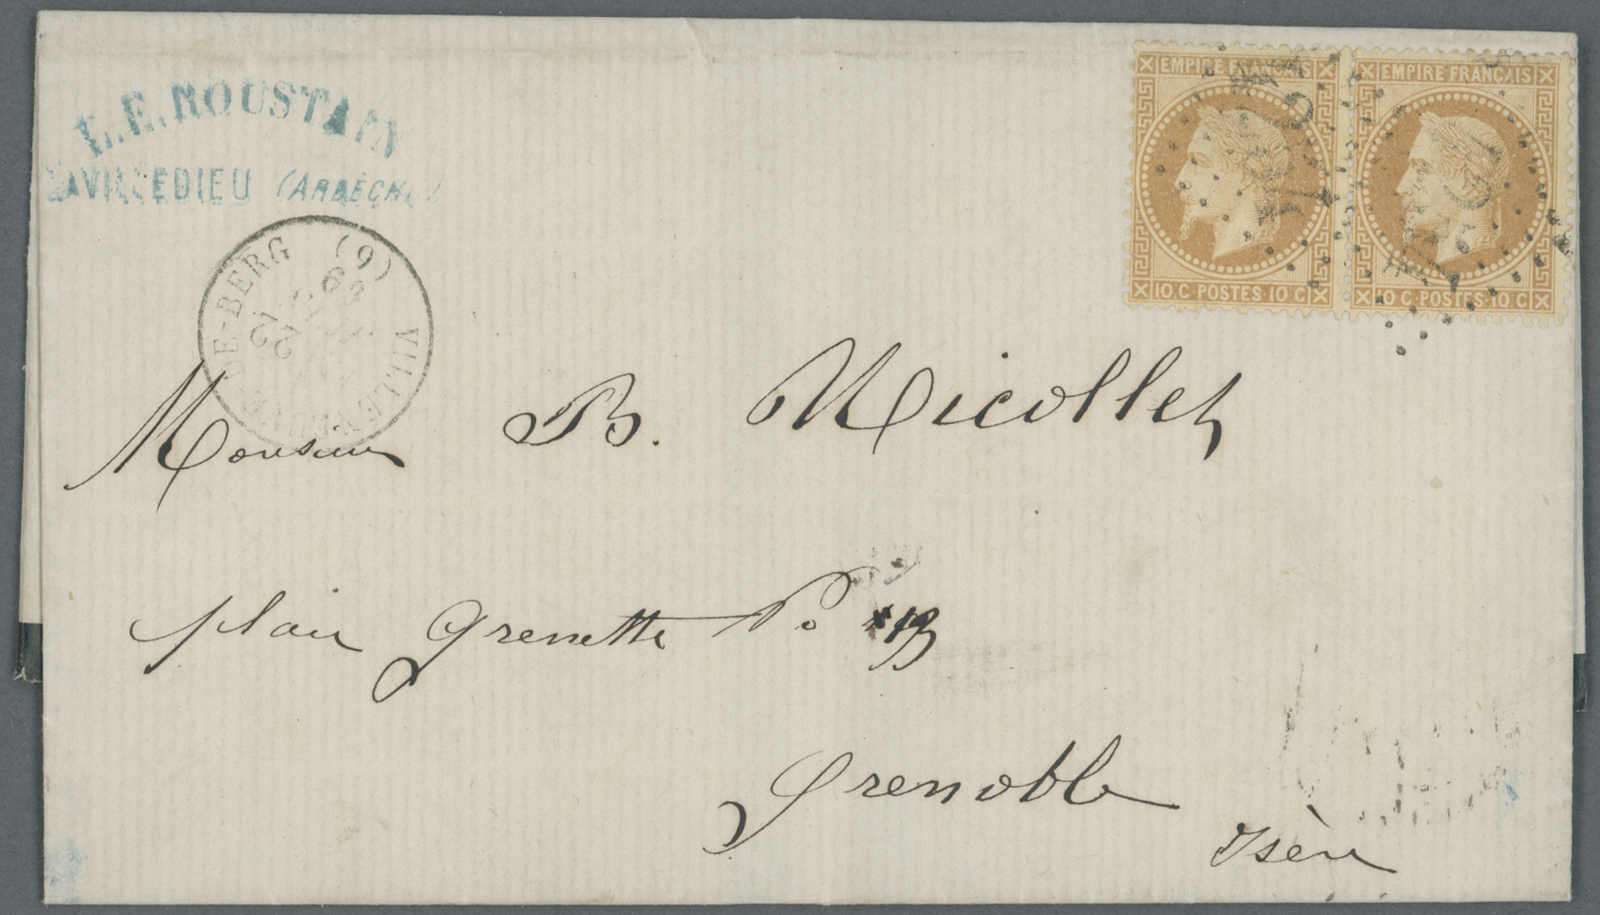 L.E. ROUSTAIN
LAVILLEDIEU (ARDÈCHE)
EMPIRE FRANÇAIS
10 C POSTES 10 C
EMPIRE FRANÇAIS
10 C POSTES 10 C
VILLENEUVE-DE-BERG (6)
22
69
Monsieur B. Nicollet
place grenette No 13
Grenoble
Isère